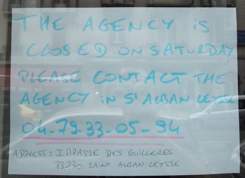 THE AGENCY IS
CLOSED ON SATURDAY
PLEASE CONTACT THE
AGENCY IN ST ALBAN LEYSSE
04-79-33-05-94
ADDRESS: IMPASSE DES
SAINT ALBAN LEYSSE